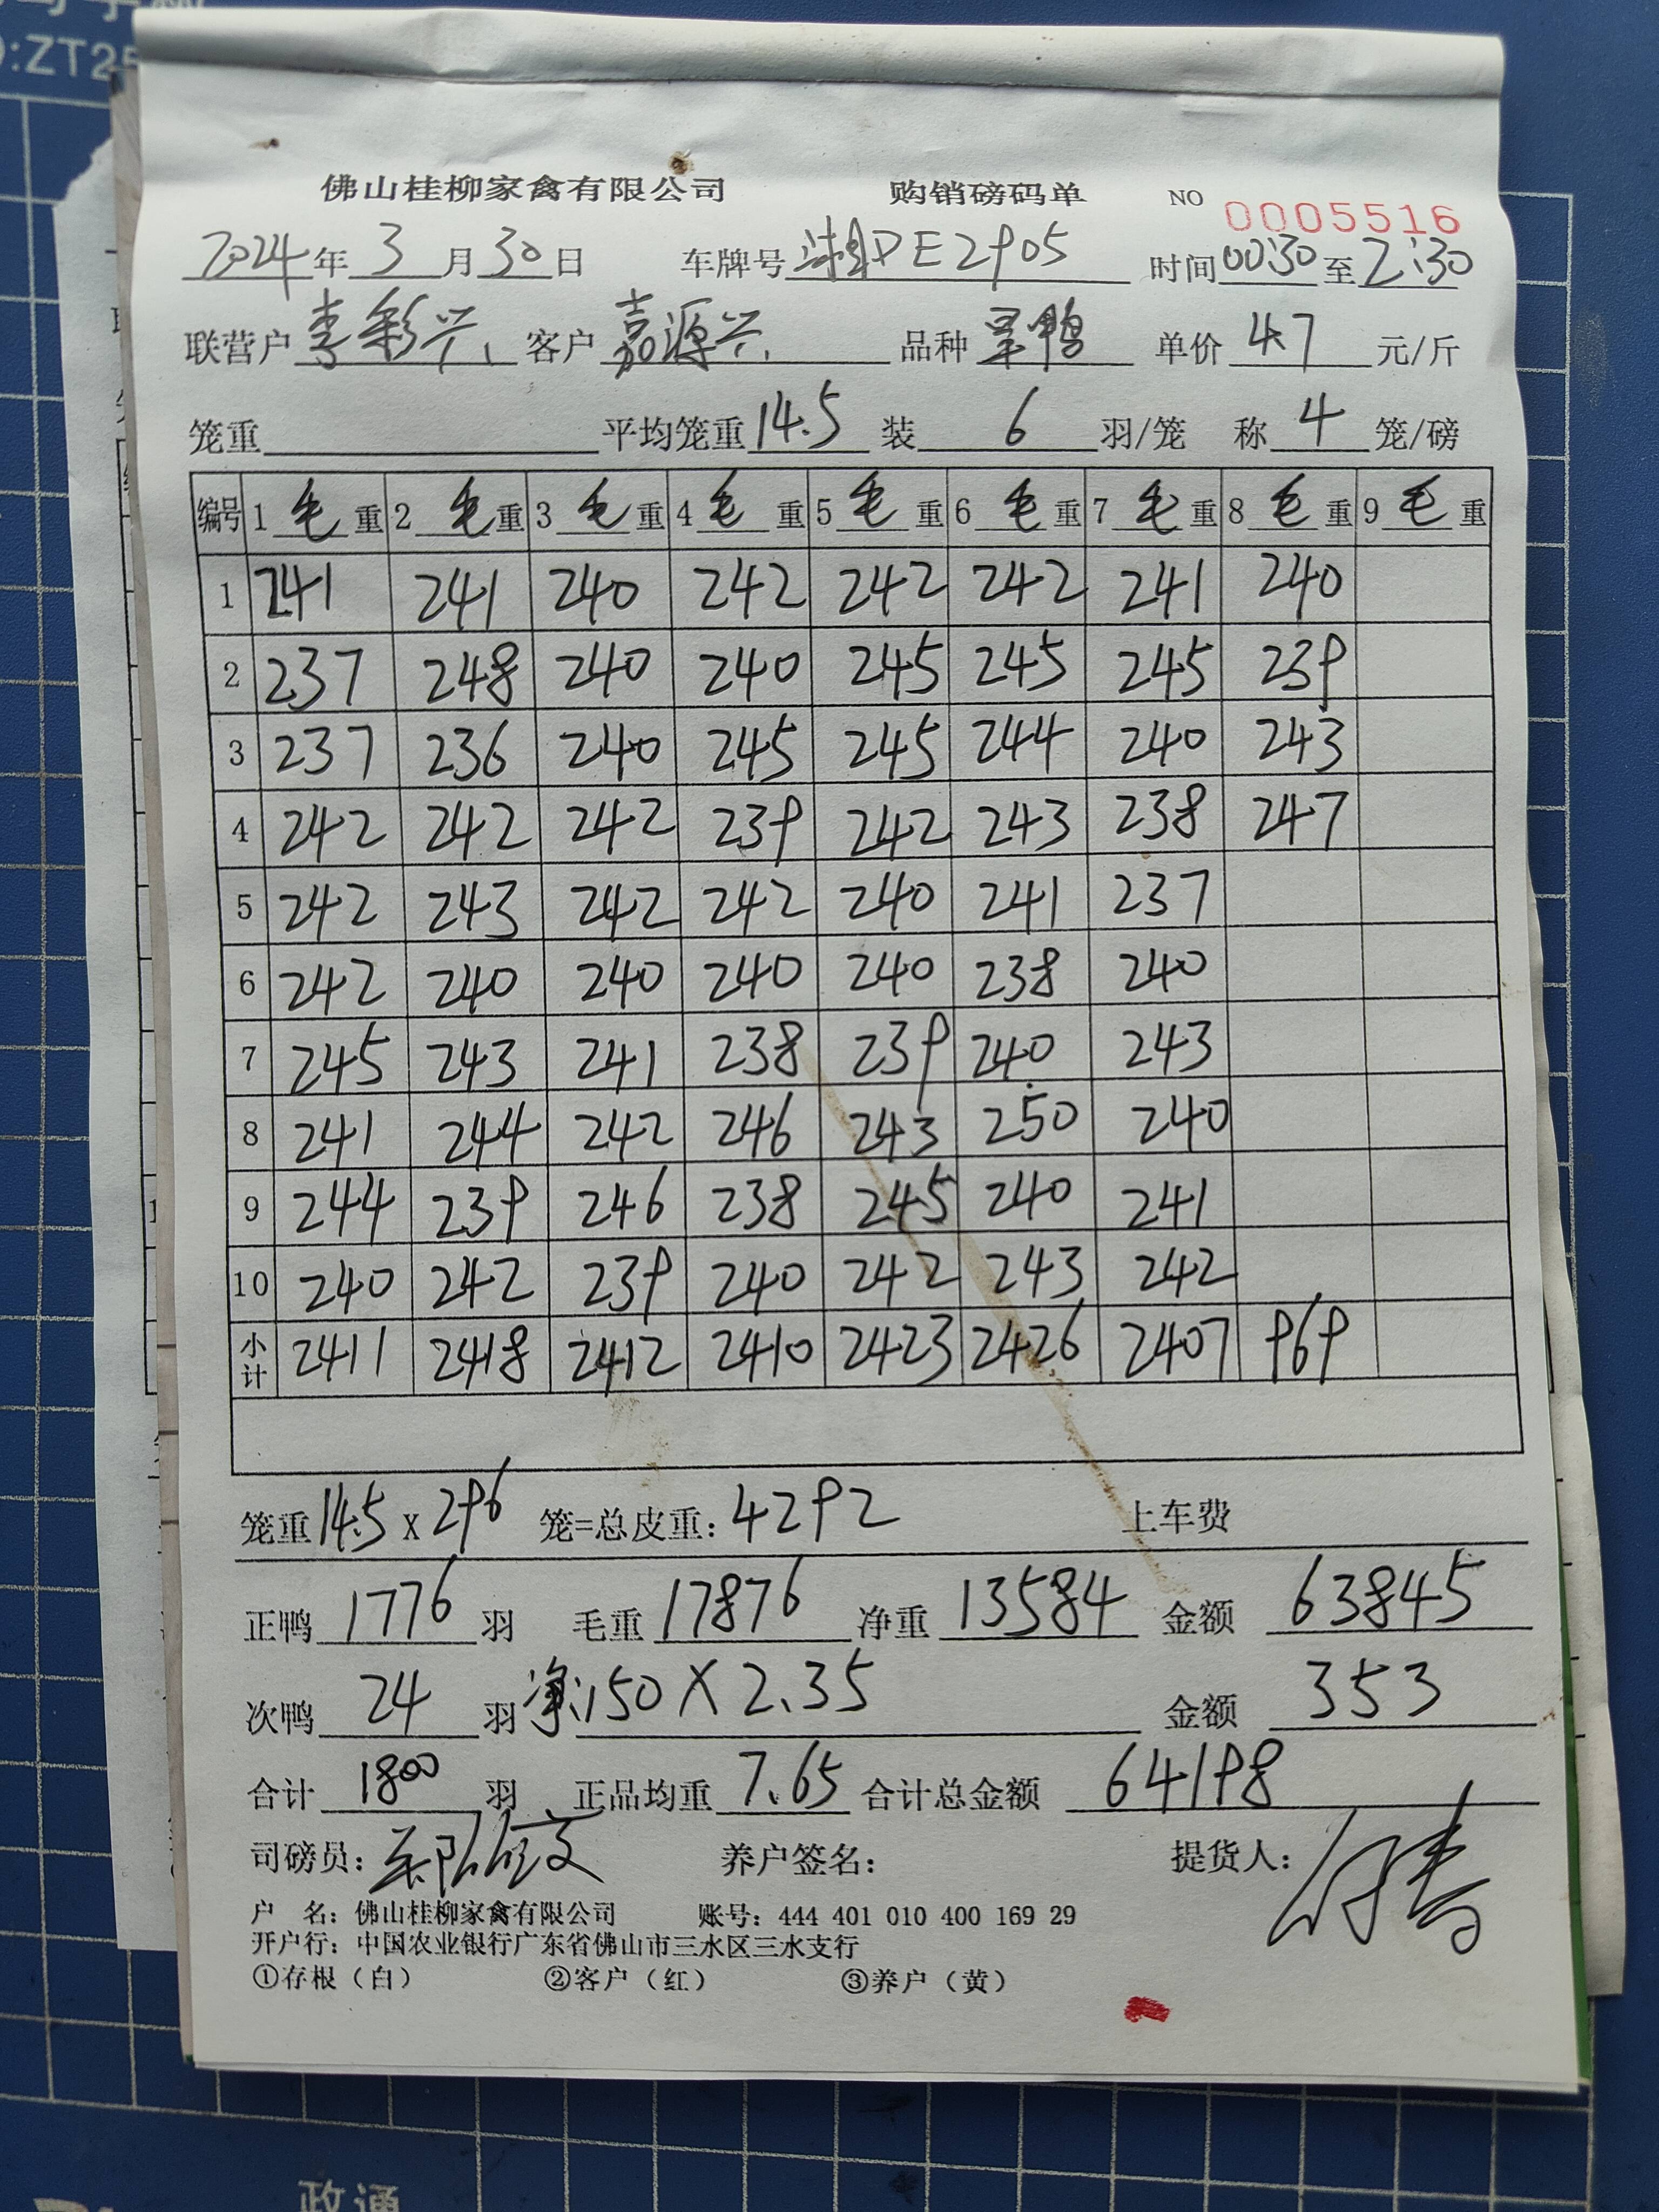 :ZT25
佛山桂柳家禽有限公司 购销磅码单 NO 0005516
2024年3月30日 车牌号 湘DE2905 时间00:30至2:30
联营户 李彩兴 客户 嘉源兴 品种 鸭 单价 4.7 元/斤
笼重 平均笼重14.5 装 6 羽/笼 称 4 笼/磅
编号 1毛重 2毛重 3毛重 4毛重 5毛重 6毛重 7毛重 8毛重 9毛重
1 241 241 240 242 242 242 241 240
2 237 248 240 240 245 245 245 239
3 237 236 240 245 245 244 240 243
4 242 242 242 239 242 243 238 247
5 242 243 242 242 240 241 237
6 242 240 240 240 240 238 240
7 245 243 241 238 239 240 243
8 241 244 242 246 243 250 240
9 244 239 246 238 245 240 241
10 240 242 239 240 242 243 242
小计 2411 2418 2412 2410 2423 2426 2407 969
笼重14.5x296 笼=总皮重:4292 上车费
正鸭 1776 羽 毛重 17876 净重 13584 金额 63845
次鸭 24 羽 净:150X2.35 金额 353
合计 1800 羽 正品均重 7.65 合计总金额 64198
司磅员: 养户签名: 提货人:
户 名: 佛山桂柳家禽有限公司 账号: 444 401 010 400 169 29
开户行: 中国农业银行广东省佛山市三水区三水支行
①存根（白） ②客户（红） ③养户（黄）
政通